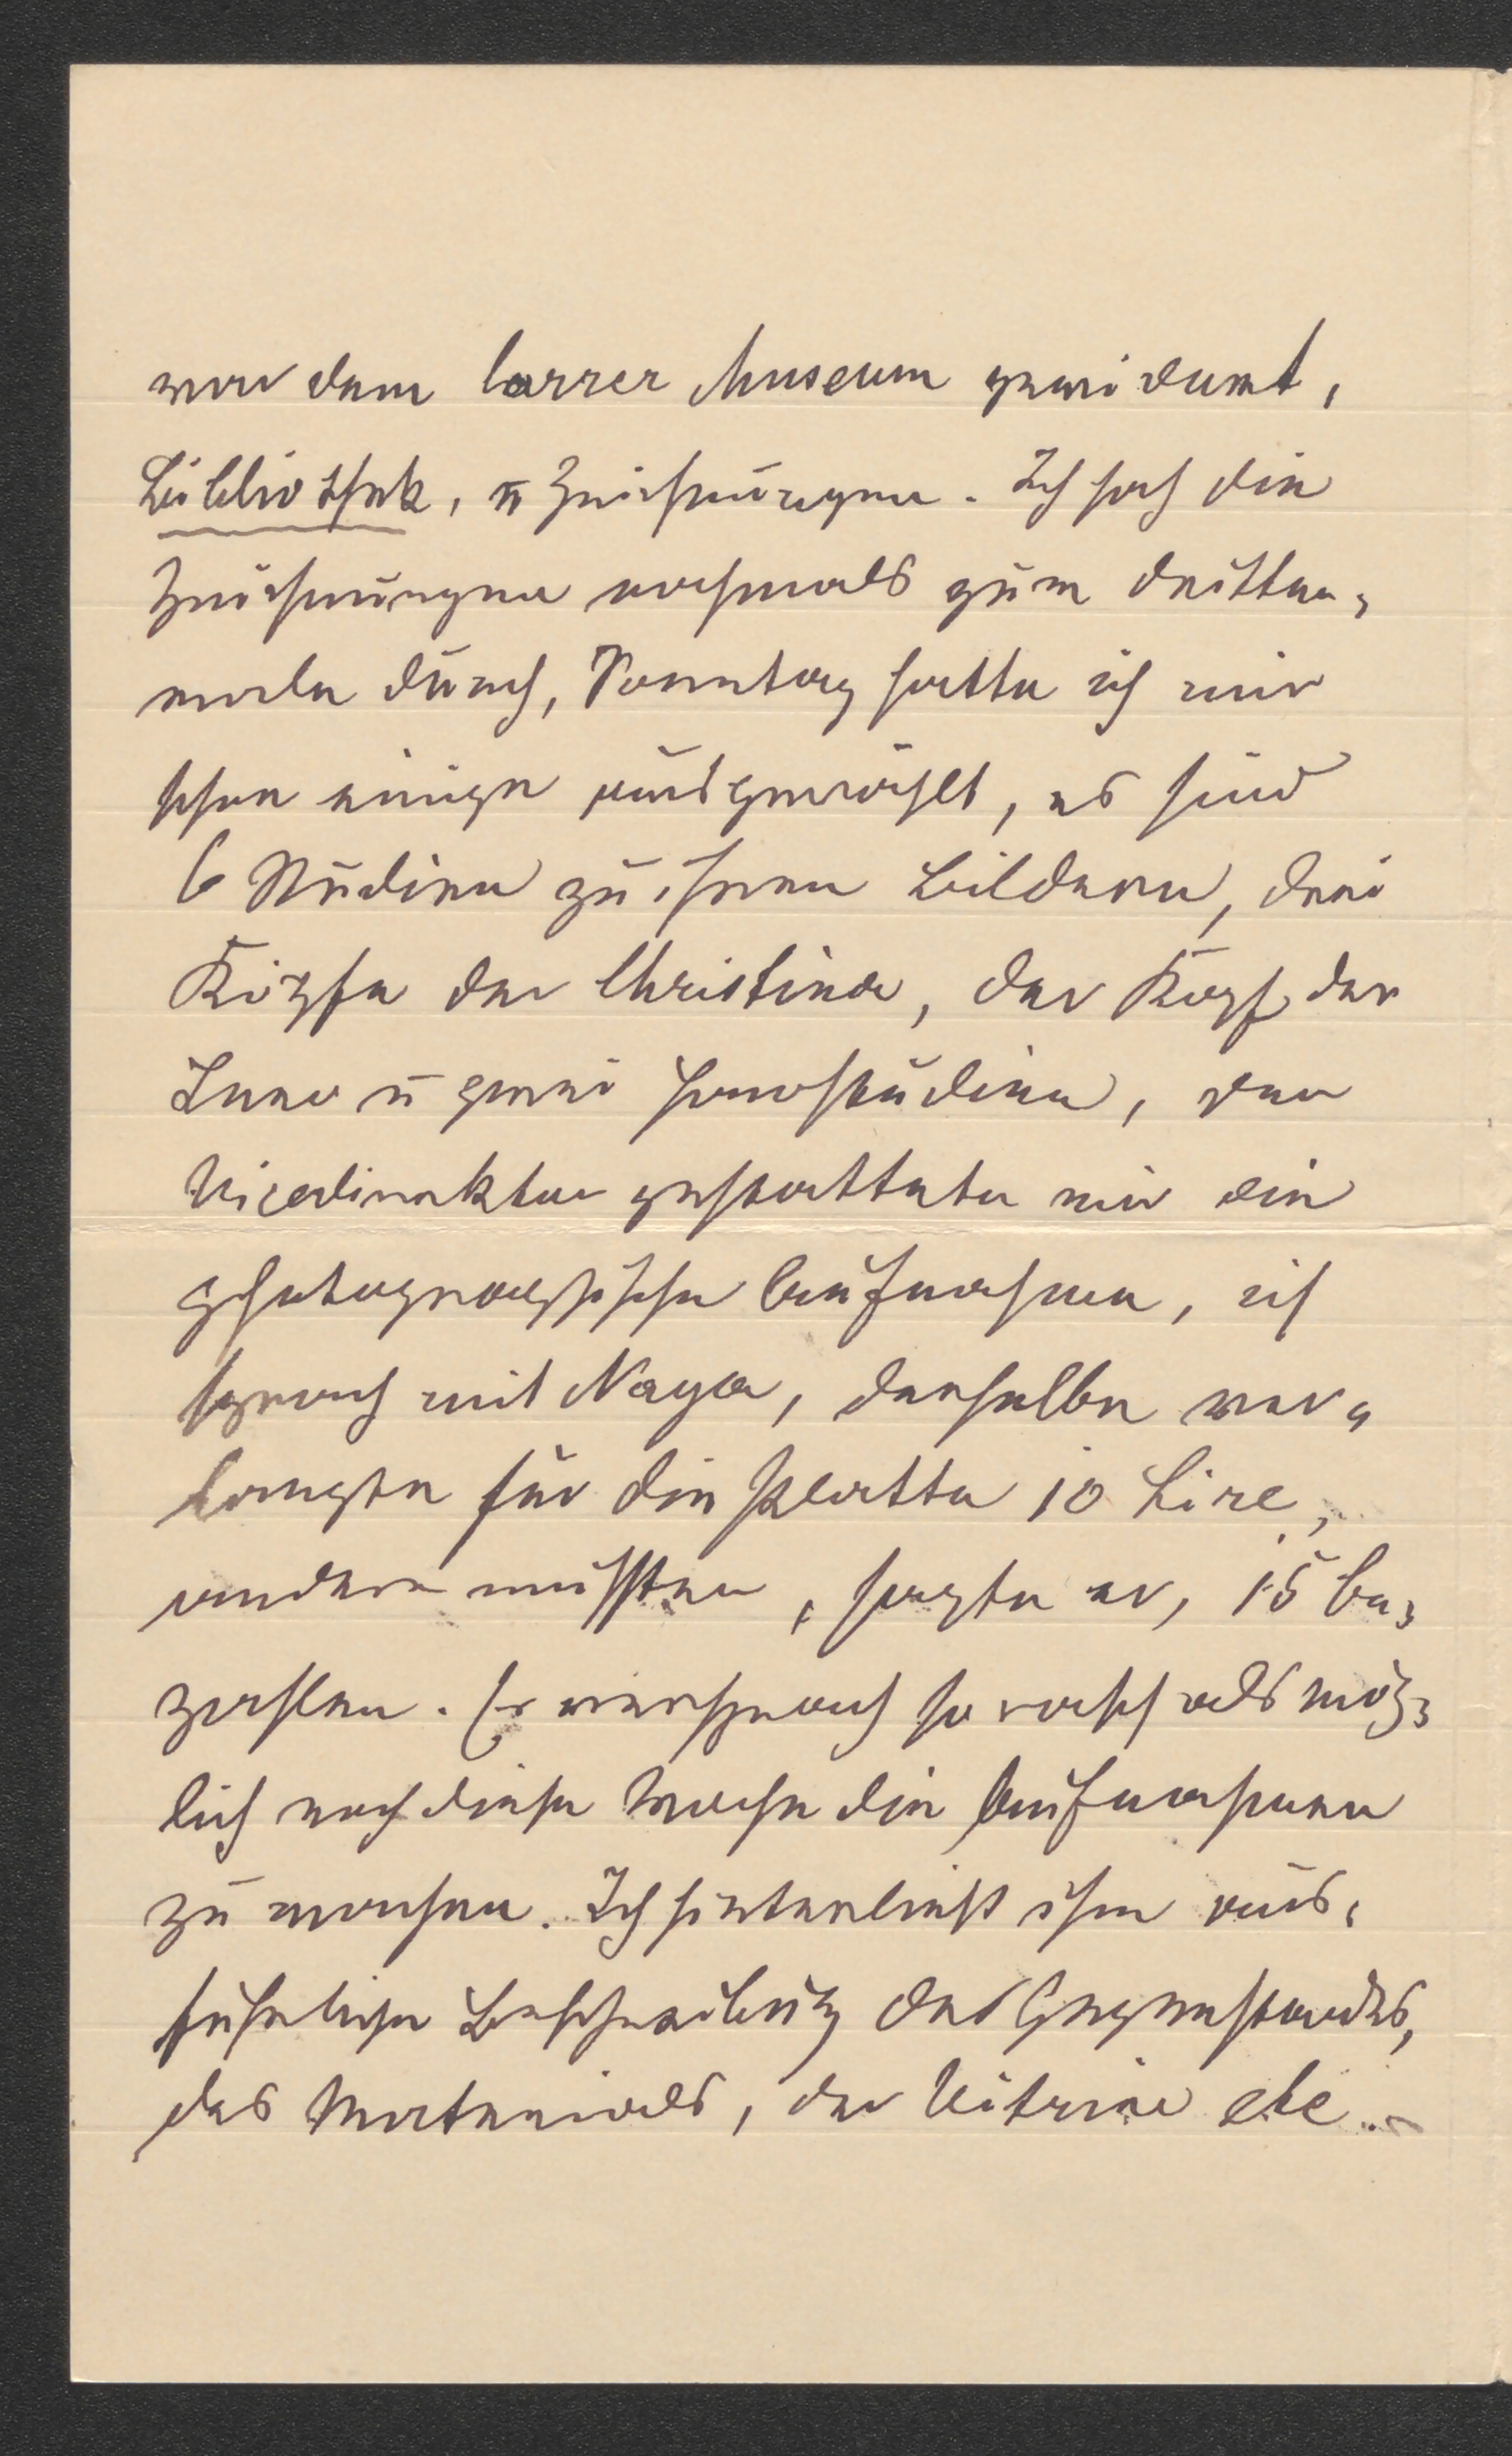 war dem Correr Museum gewidmet,
Bibliothek, u Zeichnungen. Ich sah die
Zeichnungen nochmals zum dritten-
male durch, Sonntag hatte ich mir
schon einige ausgewählt, es sind
6 Studien zu ihren Bildern, drei
Köpfe der Christina, der Kopf der
u zwei Handstudien, der
Vicedirektor gestattete mir die
photographische Aufnahme, ich
sprach mit Naya, derselbe ver-
langte für die Platte 10 Lire,
andere müssten, sagte er, 15 be-
zahlen. Er versprach so rasch als mög-
lich noch diese Woche die Aufnahmen
zu machen. Ich hinterliess ihm aus-
führliche Beschreibung des Gegenstandes,
des Materials, der Vitrine etc.